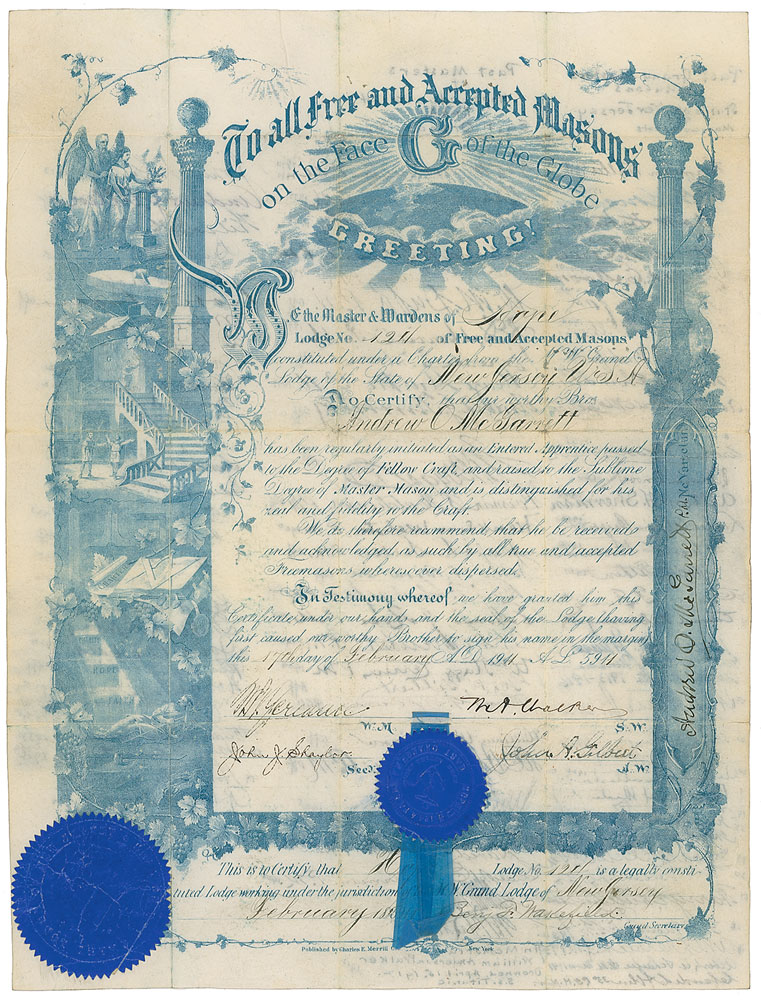 To all Free and Accepted Masons
on the Face G of the Globe
GREETING!
WE the Master & Wardens of Hope
Lodge No. 124 of Free and Accepted Masons
constituted under a Charter from the M.W. Grand
Lodge of the State of New Jersey U.S.A
Do Certify, that our worthy Bro.
Andrew O. McGarrett
has been regularly initiated as an Entered Apprentice passed
to the Degree of Fellow Craft, and raised to the Sublime
Degree of Master Mason and is distinguished for his
zeal and fidelity to the Craft.
We do therefore recommend, that he be received
and acknowledged, as such by all true and accepted
Freemasons, wheresoever dispersed.
In Testimony whereof we have granted him this
Certificate under our hands and the seal of the Lodge (having
first caused our worthy Brother to sign his name in the margin)
this 17th day of February A.D. 1911 A.L. 5911
W.M. S.W.
John J. Shaylor John A. Gilbert
Secy. J.W.
This is to Certify, that Lodge No. 124 is a legally consti-
tuted Lodge working under the jurisdiction of the Grand Lodge of New Jersey
February Benj. F. Wakefield
Grand Secretary
Published by Charles E. Merrill New York